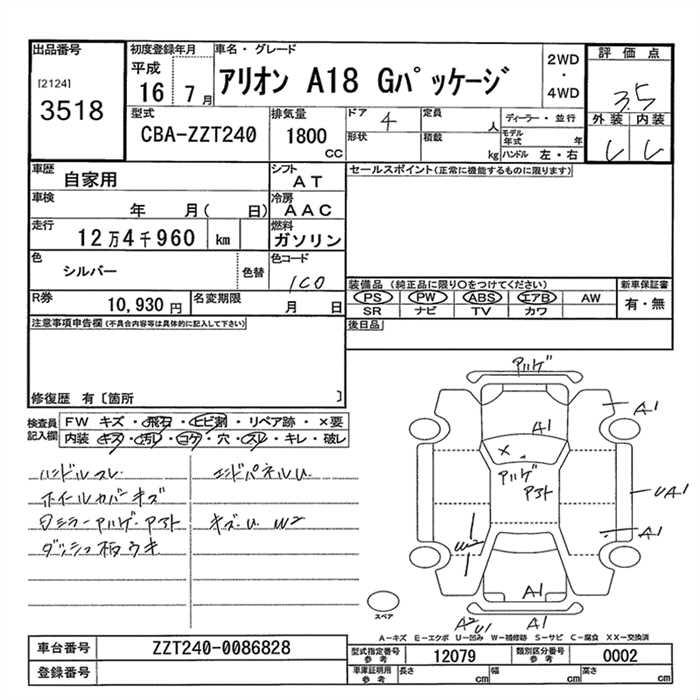 出品番号
[2124]
3518
初度登録年月
平成
16 7月
車名・グレード
アリオン A18 Gパッケージ
2WD
・
4WD
評価点
3.5
外装 内装
型式
CBA-ZZT240
排気量
1800
CC
ドア 4
形状
定員 人
積載 kg
ディーラー・並行
モデル年式 年
ハンドル 左・右
車歴
自家用
シフト
AT
セールスポイント(正常に機能するものに限ります)
車検
年 月( 日)
冷房
AAC
走行
12万4千960 km
燃料
ガソリン
色
シルバー
色替
色コード
1C0
装備品(純正品に限り○をつけてください)
PS PW ABS エアB AW
SR ナビ TV カワ
新車保証書
有・無
R券
10,930円
名変期限
月 日
後日品
注意事項申告欄(不具合内容等は具体的に記入して下さい)
修復歴 有〔箇所 〕
検査員
記入欄
FW キズ・飛石・ヒビ割・リペア跡・×要
内装 キズ・汚レ・コゲ・穴・スレ・キレ・破レ
ハンドルスレ
エンドパネルU
ホイールカバーキズ
Rミラーハゲ・アト
キズ・U W2
ダッシュ板ウキ
ハゲ
A1
A1
×
ハゲ
アト
UA1
A1
W2
A1
A2
U1
A1
スペア
A−キズ E−エクボ U−凹み W−補修跡 S−サビ C−腐食 XX−交換済
車台番号
ZZT240-0086828
登録番号
型式指定番号
参考
12079
類別区分番号
参考
0002
車庫証明用
参考
長さ cm
幅 cm
高さ cm